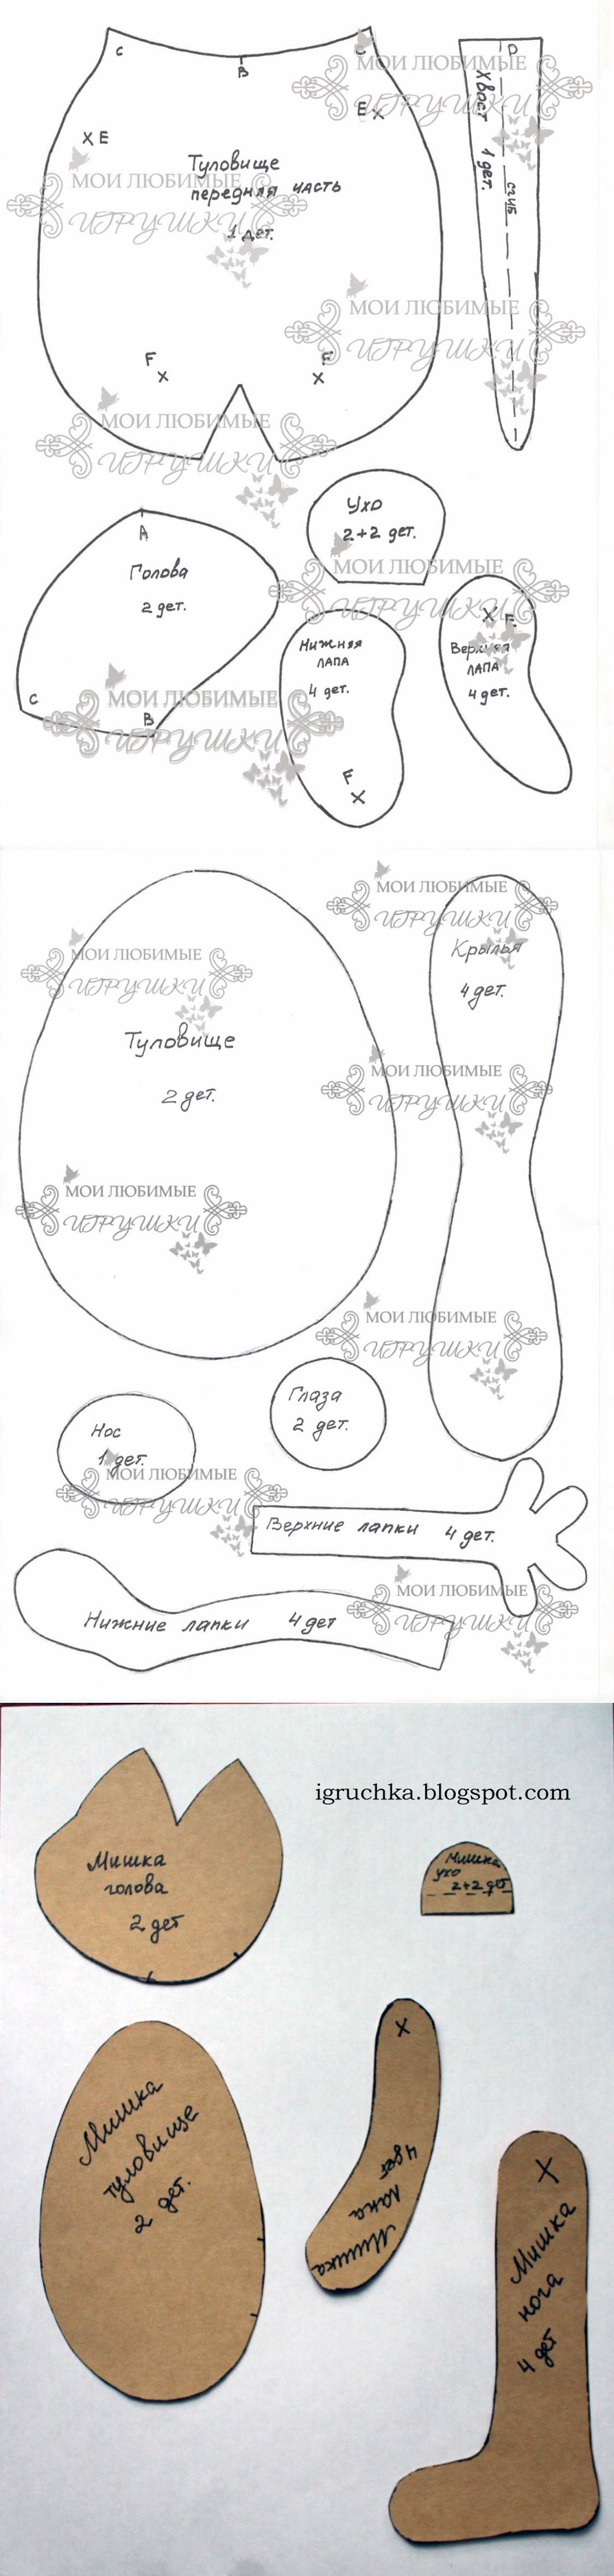 C
B
C
D
МОИ ЛЮБИМЫЕ
ИГРУШКИ
Хвост 1 дет.
сгиб
E X
X E
Туловище
передняя часть
1 дет.
МОИ ЛЮБИМЫЕ
ИГРУШКИ
МОИ ЛЮБИМЫЕ
ИГРУШКИ
F
X
F
X
МОИ ЛЮБИМЫЕ
ИГРУШКИ
Ухо
2+2 дет.
A
Голова
2 дет.
C
B
МОИ ЛЮБИМЫЕ
ИГРУШКИ
X E
Верхняя
ЛАПА
4 дет.
Нижняя
ЛАПА
4 дет.
F
X
МОИ ЛЮБИМЫЕ
ИГРУШКИ
МОИ ЛЮБИМЫЕ
ИГРУШКИ
Крылья
4 дет.
МОИ ЛЮБИМЫЕ
ИГРУШКИ
Туловище
2 дет.
МОИ ЛЮБИМЫЕ
ИГРУШКИ
МОИ ЛЮБИМЫЕ
ИГРУШКИ
МОИ ЛЮБИМЫЕ
ИГРУШКИ
Глаза
2 дет.
Нос
1 дет.
МОИ ЛЮБИМЫЕ
ИГРУШКИ
Верхние лапки 4 дет.
МОИ ЛЮБИМЫЕ
ИГРУШКИ
Нижние лапки 4 дет
igruchka.blogspot.com
Мишка
голова
2 дет
Мишка
ухо
2+2 дет
Мишка
туловище
2 дет.
X
Мишка
лапа
4 дет
X
Мишка
нога
4 дет